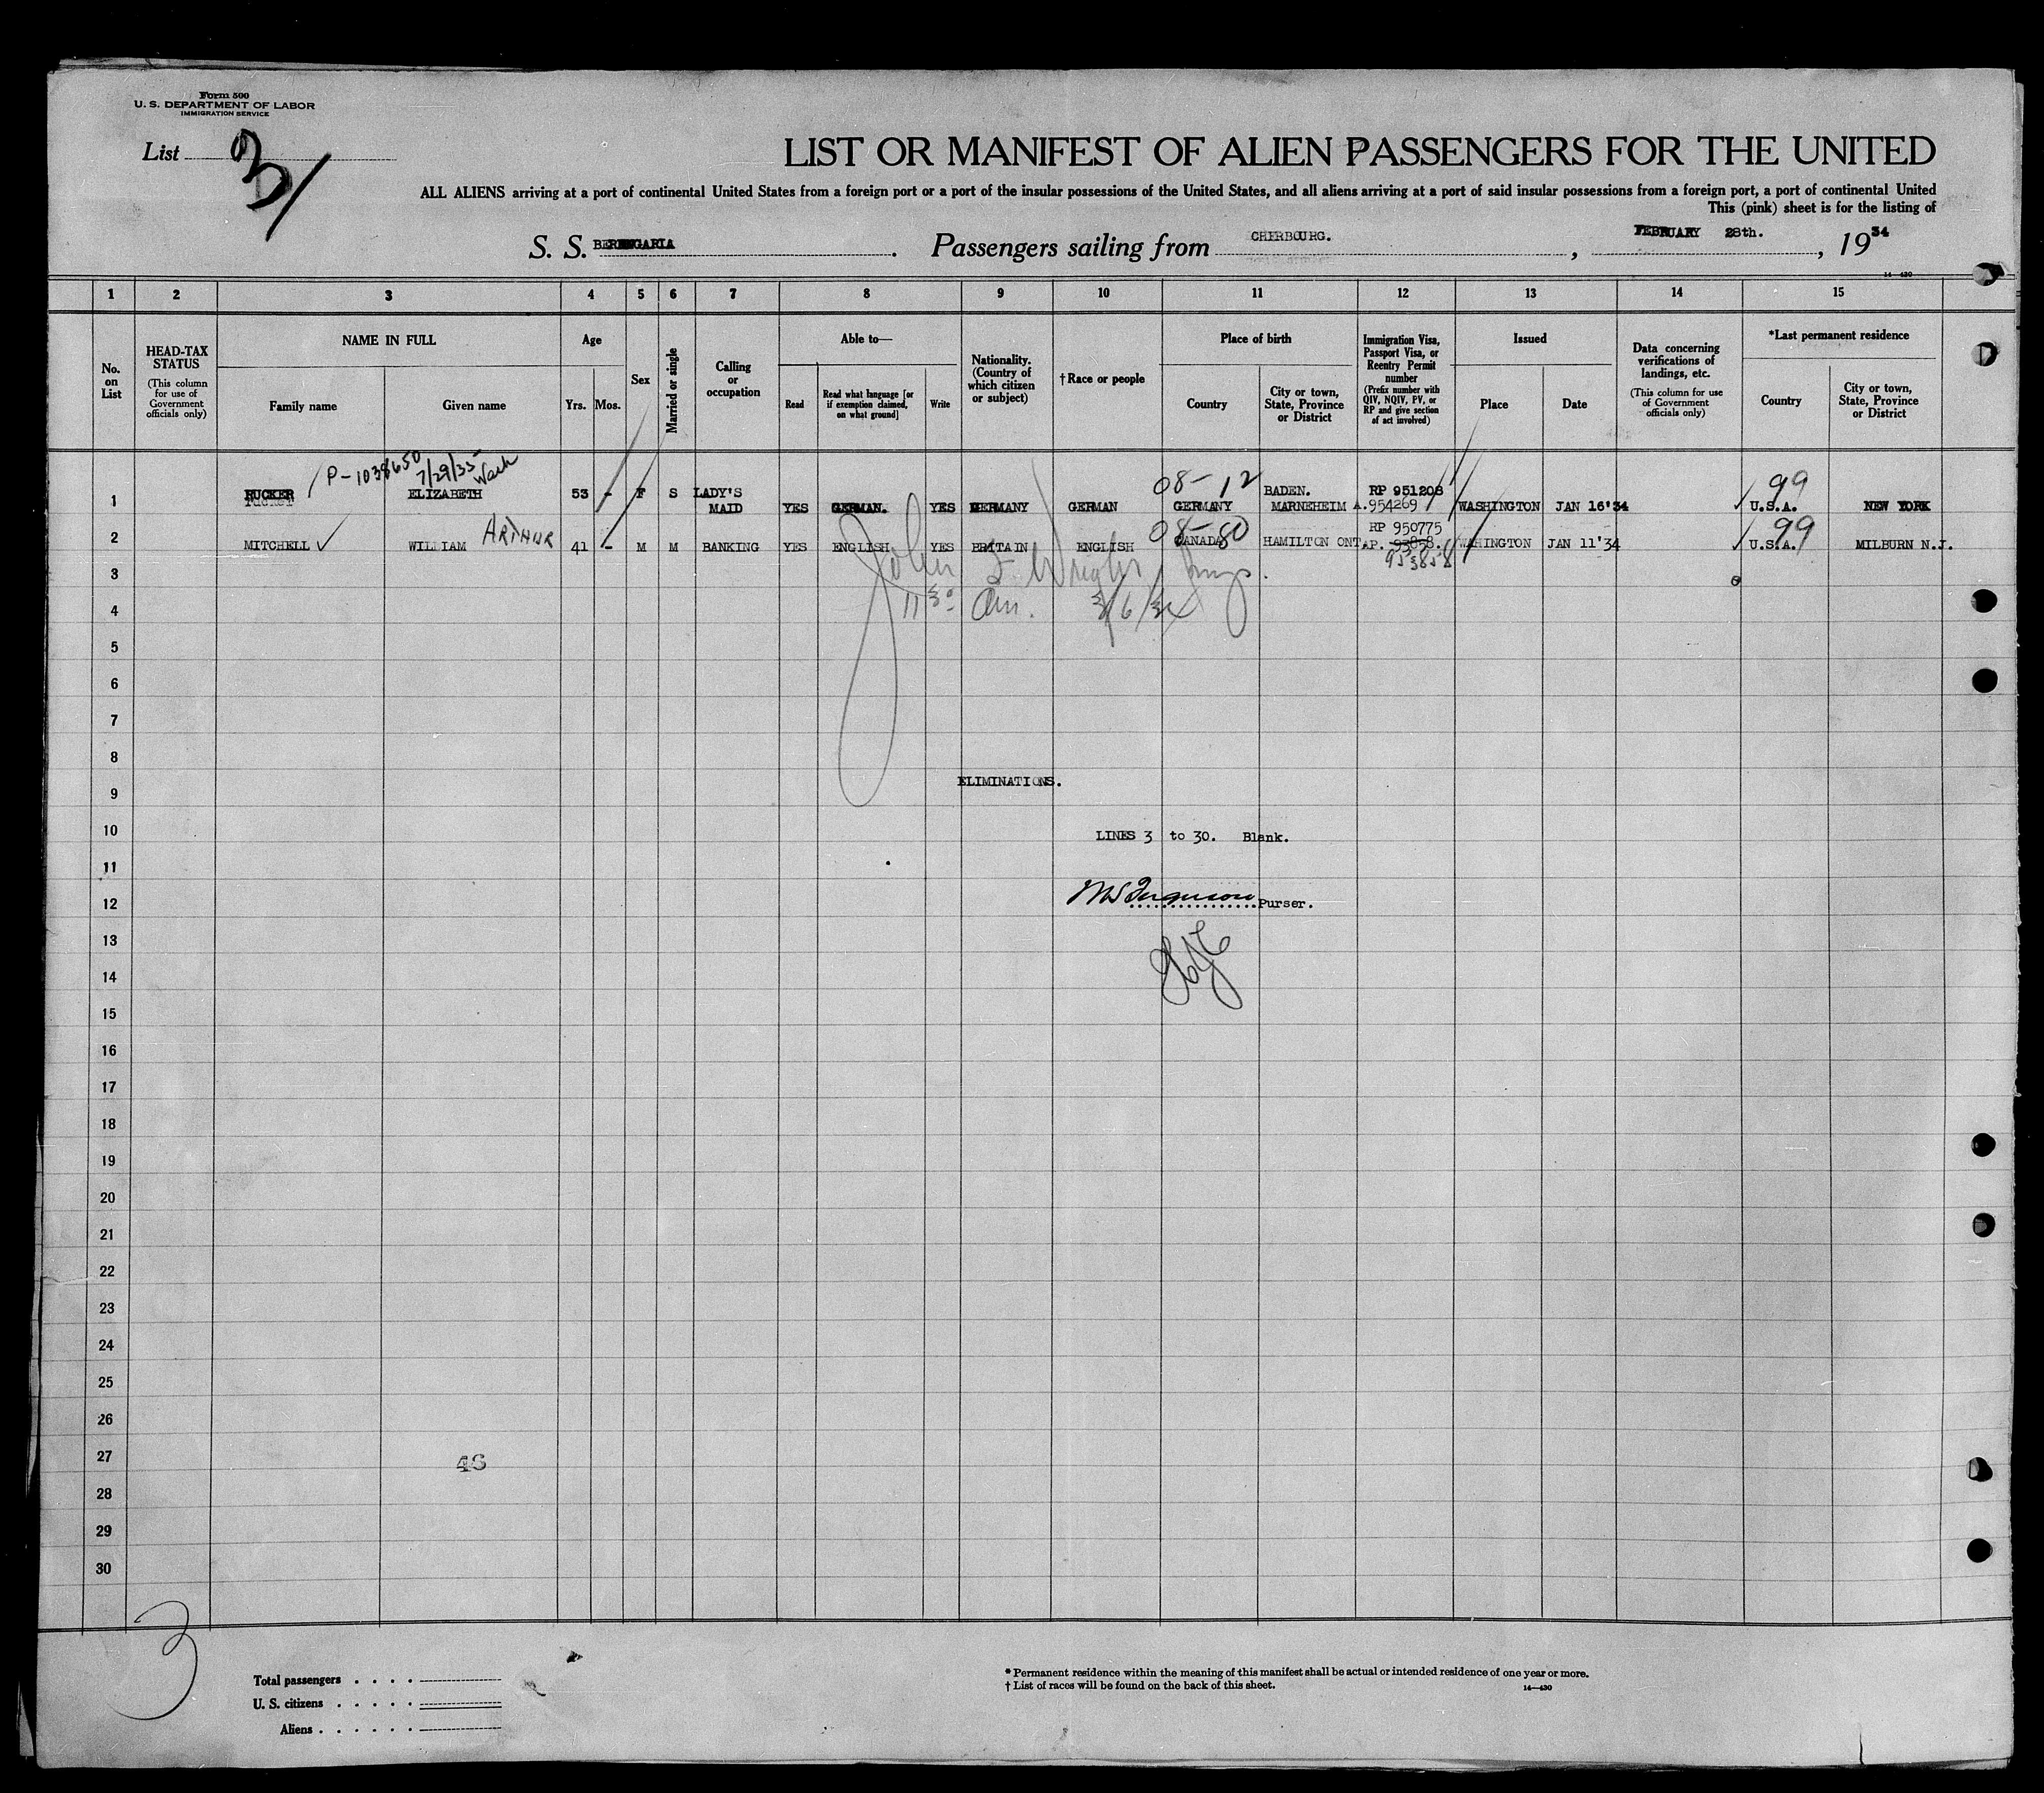 Form 500
U. S. DEPARTMENT OF LABOR
IMMIGRATION SERVICE
List 3
LIST OR MANIFEST OF ALIEN PASSENGERS FOR THE UNITED
ALL ALIENS arriving at a port of continental United States from a foreign port or a port of the insular possessions of the United States, and all aliens arriving at a port of said insular possessions from a foreign port, a port of continental United
This (pink) sheet is for the listing of
S. S. BERENGARIA. Passengers sailing from CHERBOURG. , FEBRUARY 28th. , 1934
14—430
1 2 3 4 5 6 7 8 9 10 11 12 13 14 15
No. on List
HEAD-TAX STATUS
(This column for use of Government officials only)
NAME IN FULL
Family name Given name
Age
Yrs. Mos.
Sex
Married or single
Calling or occupation
Able to—
Read
Read what language [or if exemption claimed, on what ground]
Write
Nationality. (Country of which citizen or subject)
†Race or people
Place of birth
Country
City or town, State, Province or District
Immigration Visa, Passport Visa, or Reentry Permit number
(Prefix number with QIV, NQIV, PV, or RP and give section of act involved)
Issued
Place Date
Data concerning verifications of landings, etc.
(This column for use of Government officials only)
*Last permanent residence
Country
City or town, State, Province or District
P-1038650 7/29/35 Wash
08-12 99
1 RUCKER ELIZABETH 53 - F S LADY'S MAID YES GERMAN. YES GERMANY GERMAN GERMANY BADEN. MARNEHEIM RP 951208 A.954269 WASHINGTON JAN 16'34 U.S.A. NEW YORK
08-80 99
2 MITCHELL WILLIAM ARTHUR 41 - M M BANKING YES ENGLISH YES BRITAIN ENGLISH CANADA HAMILTON ONT RP 950775 AP. 93858. 953858 WAHINGTON JAN 11'34 U.S.A. MILBURN N.J.
3 John Wright
4 11 30 am. 3/6/34
5
6
7
8
ELIMINATIONS.
9
10 LINES 3 to 30. Blank.
11
12 Ferguson Purser.
13
14
15
16
17
18
19
20
21
22
23
24
25
26
27 46
28
29
30
3
Total passengers
U. S. citizens
Aliens
* Permanent residence within the meaning of this manifest shall be actual or intended residence of one year or more.
† List of races will be found on the back of this sheet.
14—430